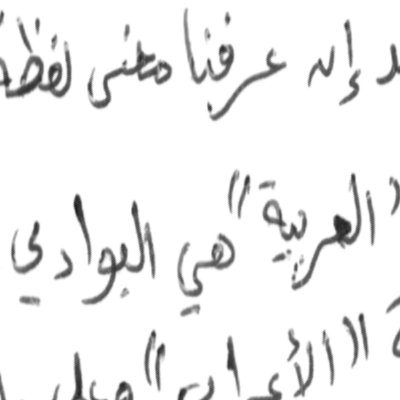 إن عرفنا معنى لفظة
"العربية" هي البوادي
"الأعراب" وعلى